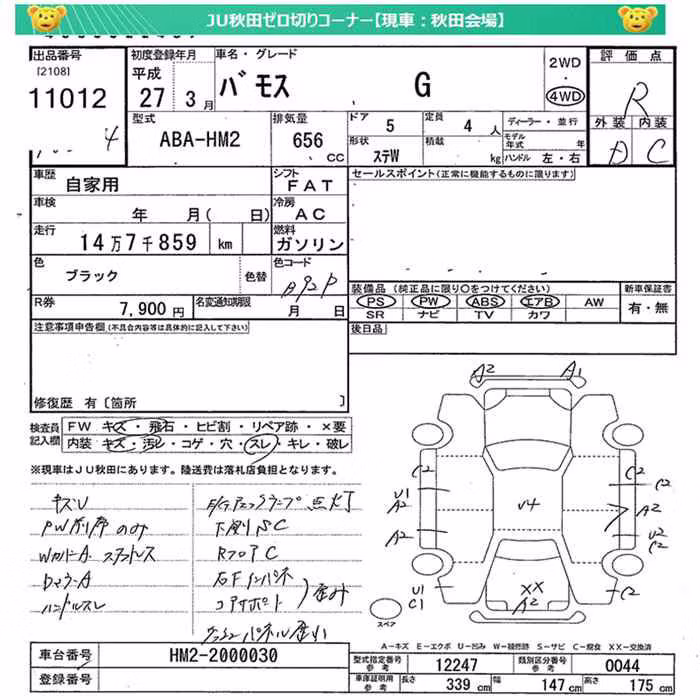 JU秋田ゼロ切りコーナー【現車：秋田会場】
出品番号 初度登録年月 車名・グレード 2WD ・ 4WD 評価点
[2108]
11012 平成 27年 3月 バモス G R
4
型式 ABA-HM2 排気量 656 CC
ドア 5 定員 4 人 ディーラー・並行
形状 ステW 積載 kg モデル年式 年
ハンドル 左・右
外装 内装
D C
車歴 自家用 シフト FAT
車検 年 月( 日) 冷房 AC
走行 14万7千859 km 燃料 ガソリン
色 ブラック 色替 色コード B92P
R券 7,900円 名変通知期限 月 日
セールスポイント(正常に機能するものに限ります)
装備品(純正品に限り○をつけてください) 新車保証書
PS PW ABS エアB AW 有・無
SR ナビ TV カワ
後日品
注意事項申告欄(不具合内容等は具体的に記入して下さい)
修復歴 有[箇所 ]
検査員記入欄
FW キズ・飛石・ヒビ割・リペア跡・×要
内装 キズ・汚レ・コゲ・穴・スレ・キレ・破レ
※現車はJU秋田にあります。陸送費は落札店負担となります。
キズU
のみ
ハンドルスレ
点灯
下廻りSC
RフロアC
コアサポート
歪み
A2 A1
C2 C2 C2
U1 A2 U4 A2
A2 U2 C2
U1 C1 XX A2 C2
スペア
A－キズ E－エクボ U－凹み W－補修跡 S－サビ C－腐食 XX－交換済
車台番号 HM2-2000030
登録番号
型式指定番号 参考 12247 類別区分番号 参考 0044
車庫証明用 参考 長さ 339 cm 幅 147 cm 高さ 175 cm